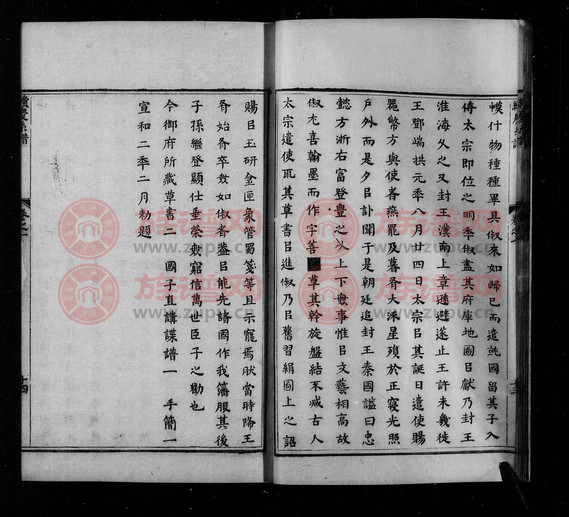 幞什物種種畢具俶來如歸已而遣諴國畱其子入
侍太宗卽位之明秊俶盡其府庫地圖㠯獻乃封王
淮海久之又封王漢南上章遜避遂止王許未幾徙
王鄧端拱元秊八月廿四日太宗㠯其誕日遣使賜
噐幣方與使者燕罷及暮
大流星殞於正寢光照
戶外而是夕㠯訃聞于是朝廷追封王秦國諡曰忠
懿方浙右富登豐之久上下
事惟㠯文藝相高故
俶尤喜翰墨而作字善
草其斡旋盤結不减古人
太宗遣使取其草書㠯進俶乃㠯舊習絹圖上之詔
賜㠯玉研金匣
管蜀箋等且示寵焉肰當時降王
者始
卒
如俶者蓋㠯能先諸國作我藩服其後
子孫繼登顯仕垂榮
窮信萬世臣子之勸也
今御府所藏草書二
國子直講諜譜一
手簡一
宣和二年二月勑題
十四
族谱网
www.zupu.cn